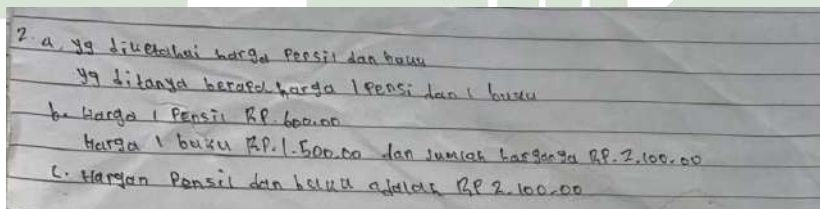 2. a. yg diketahui harga Pensil dan buku
yg ditanya berapa harga 1 Pensi dan 1 buku
b. Harga 1 Pensil RP. 600.00
Harga 1 buku RP. 1.500.00 dan jumlah harganya RP. 2.100.00
C. Hargan Pensil dan buku adalah RP 2.100.00